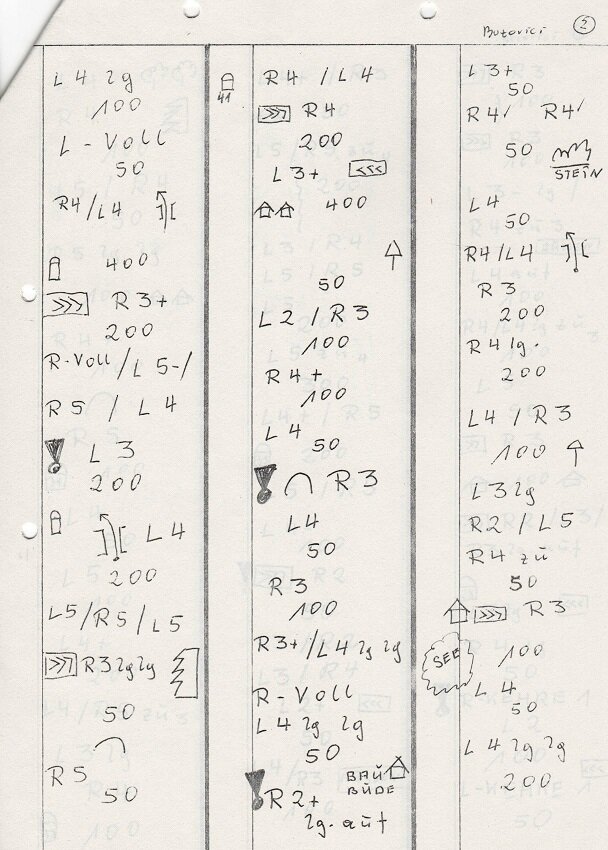 Butovici 2
L 4 lg
100
L - Voll
50
R4/L4
400
>>> R 3+
200
R-Voll/L 5-/
R 5 / L 4
! L 3
200
L 4
200
L5/R5/L5
>>> R3 lg lg
50
R 5
50
41
R4 / L4
>>> R4
200
L 3+ <<<
400
50
L 2 / R 3
100
R 4 +
100
L 4
50
! R 3
L4
50
R 3
100
R3+/L4 lg lg
R - Voll
L 4 lg lg
50
BAU
BUDE
! R 2+
lg. auf
L 3+
50
R4/ R4/
50
STEIN
L 4
50
R4/L4
R 3
200
R 4 lg.
200
L4 / R3
100
L 3 lg
R2 / L5
R 4 zu
50
>>> R 3
SEE
100
L 4
50
L 4 lg lg
200